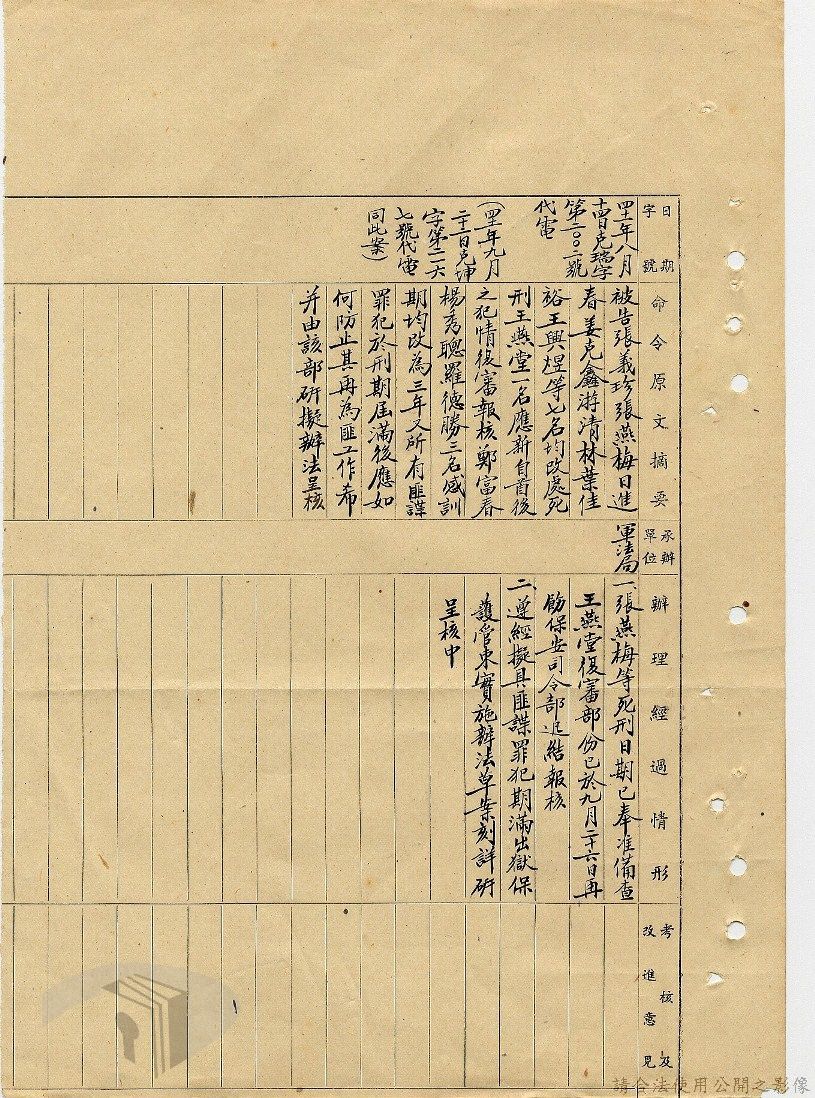 日期
字號
四十一年八月
十四日克瑞字
第二〇〇二號
代電
(四十一年九月
二十一日克坤
字第二一六
七號代電
同此案)
命令原文摘要
被告張義珍張燕梅日進
春姜克鑫游清林葉佳
裕王興煜等七名均改處死
刑王燕堂一名應新自首後
之犯情復審報核鄭富春
楊秀聰羅德勝三名感訓
期均改為三年又所有匪諜
罪犯於刑期屆滿後應如
何防止其再為匪工作希
并由該部研擬辦法呈核
承辦
單位
軍法局
辦理經過情形
一、張燕梅等死刑日期已奉准備查
王燕堂復審部份已於九月二十六日再
飭保安司令部迅結報核
二、遵經擬具匪諜罪犯期滿出獄保
護管束實施辦法草案刻詳研
呈核中
考核及
改進意見
請合法使用公開之影像